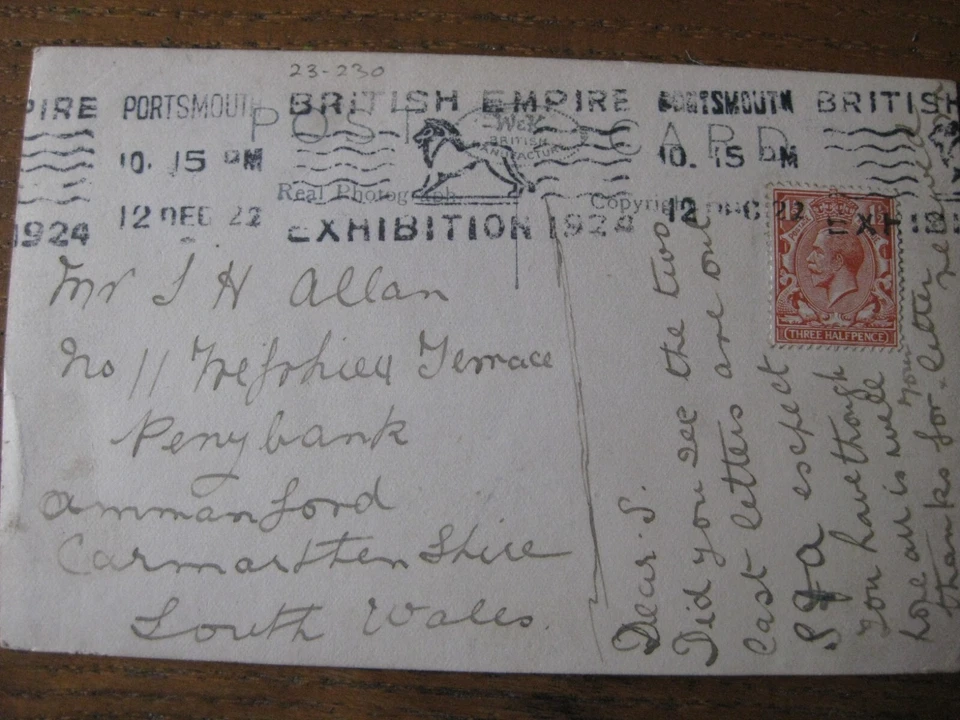 23-230
PIRE PORTSMOUTH BRITISH EMPIRE PORTSMOUTH BRITISH
POST CARD
W&K
BRITISH
MANUFACTURE
10. 15 PM 10. 15 PM
Real Photograph Copyright
1924 12 DEC 22 EXHIBITION 1924 12 DEC 22 EXHIBI
THREE HALFPENCE
Mr S H Allan
No 11 Terrace
Penybank
Ammanford
Carmarthen Shire
South Wales.
Dear S.
Did you see the two
last letters are out
S & a espect
You have though
hoe all is well
thanks for letter